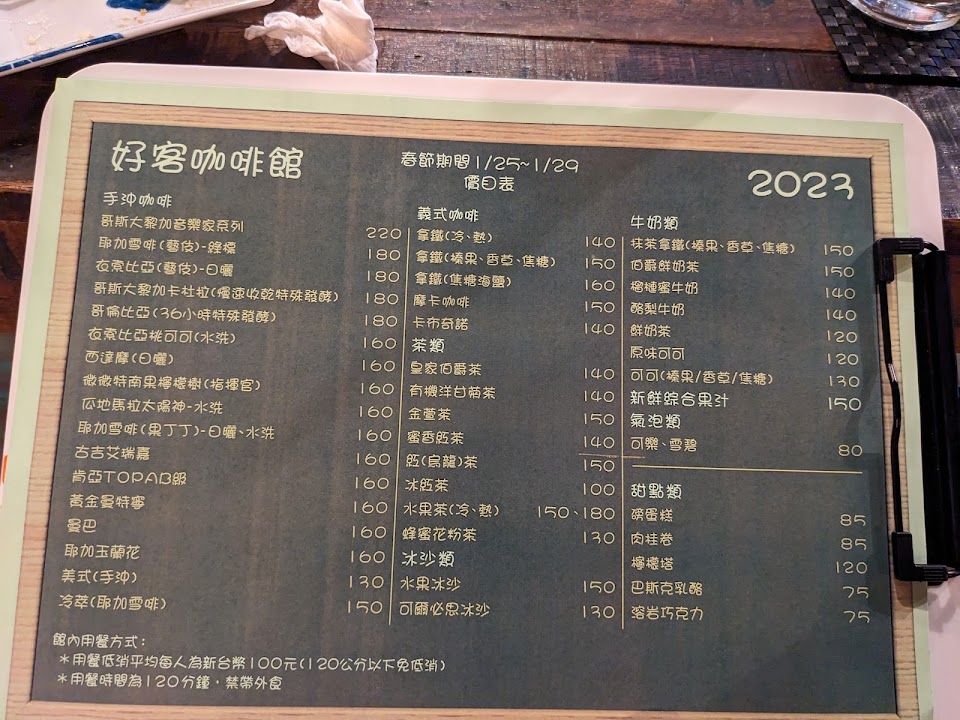 好客咖啡館
春節期間1/25~1/29
價目表
2023
手沖咖啡
哥斯大黎加音樂家系列 220
耶加雪啡(藝伎)-綠標 180
衣索比亞(藝伎)-日曬 180
哥斯大黎加卡杜拉(慢速收乾特殊發酵) 180
哥倫比亞(36小時特殊發酵) 180
衣索比亞桃可可(水洗) 160
西達摩(日曬) 160
微微特南果檸檬樹(指揮官) 160
瓜地馬拉太陽神-水洗 160
耶加雪啡(果丁丁)-日曬、水洗 160
古吉艾瑞嘉 160
肯亞TOPAB級 160
黃金曼特寧 160
曼巴 160
耶加玉蘭花 160
美式(手沖) 130
冷萃(耶加雪啡) 150
義式咖啡
拿鐵(冷、熱) 140
拿鐵(榛果、香草、焦糖) 150
拿鐵(焦糖海鹽) 160
摩卡咖啡 150
卡布奇諾 140
茶類
皇家伯爵茶 140
有機洋甘菊茶 140
金萱茶 150
蜜香紅茶 140
紅(烏龍)茶 150
冰紅茶 100
水果茶(冷、熱) 150、180
蜂蜜花粉茶 130
冰沙類
水果冰沙 150
可爾必思冰沙 130
牛奶類
抹茶拿鐵(榛果、香草、焦糖) 150
伯爵鮮奶茶 150
榴槤蜜牛奶 140
酪梨牛奶 140
鮮奶茶 120
原味可可 120
可可(榛果/香草/焦糖) 130
新鮮綜合果汁 150
氣泡類
可樂、雪碧 80
甜點類
磅蛋糕 85
肉桂卷 85
檸檬塔 120
巴斯克乳酪 75
溶岩巧克力 75
館內用餐方式：
＊用餐低消平均每人為新台幣100元(120公分以下免低消)
＊用餐時間為120分鐘，禁帶外食